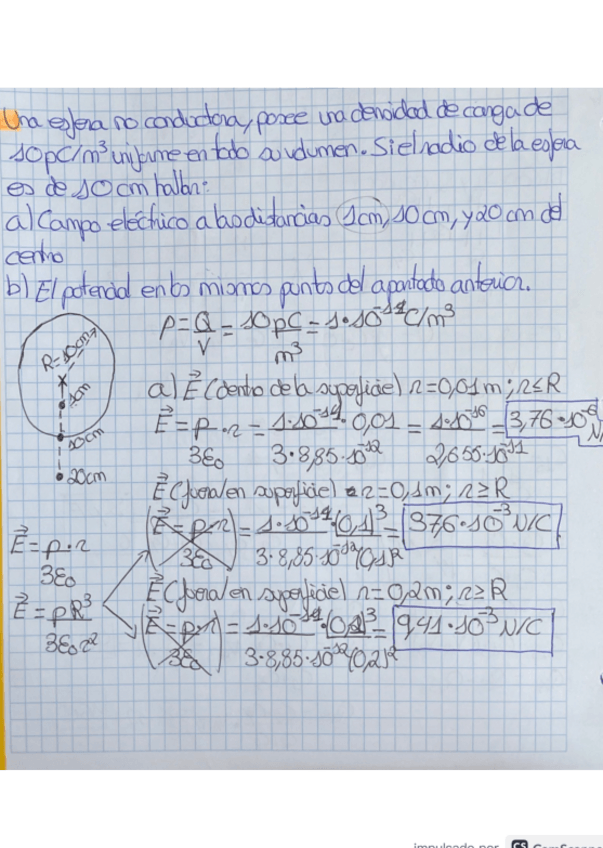 Una esfera no conductora, posee una densidad de carga de
10pC/m³ uniforme en todo su volumen. Si el radio de la esfera
es de 10cm hallar:
a) Campo eléctrico a las distancias 1cm, 10cm, y 20cm del
centro
b) El potencial en los mismos puntos del apartado anterior.
ρ = Q/V = 10pC/m³ = 1·10⁻¹¹C/m³
R=10cm
1cm
10cm
20cm
a) E⃗ (dentro de la superficie) r=0,01m; r≤R
E⃗ = ρ·r/3ε₀ = 1·10⁻¹⁴·0,01/3·8,85·10⁻¹² = 1·10⁻¹⁶/2,655·10⁻¹¹ = 3,76·10⁻⁶ N/
E⃗ (fuera/en superficie) r=0,1m; r≥R
(E⃗ = ρ·r/3ε₀) = 1·10⁻¹⁴·(0,1)³/3·8,85·10⁻¹²(0,1)² = 376·10⁻³ N/C
E⃗ = ρ·r/3ε₀
E⃗ (fuera/en superficie) r=0,2m; r≥R
E⃗ = ρR³/3ε₀r²
(E⃗ = ρ·r/3ε₀) = 1·10⁻¹⁴·(0,1)³/3·8,85·10⁻¹²(0,2)² = 9,41·10⁻³ N/C
impulsado por CS CamScanne